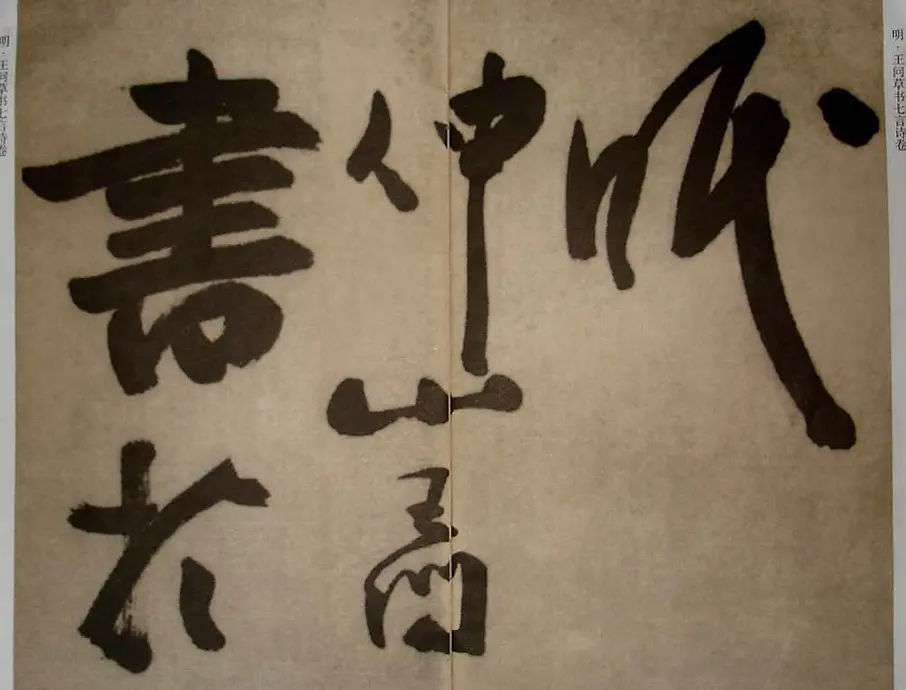 明·王问草书七言诗卷
眠
仲山王問
書於
明·王问草书七言诗卷